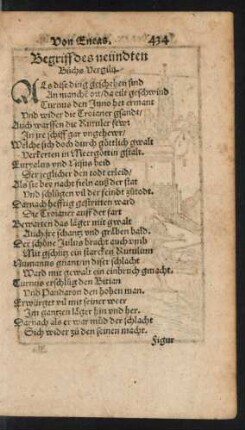 Von Eneas. 434
Begriff des neündten
Büchs Vergilij.
Als dise ding geschehen sind
An manchẽ ort / da eilt geschwind
Turnus den Juno het ermant
Und wider die Troianer gsandt /
Auch warffen die Rutuler fewr
In jre schiff gar ungehewr /
Welche sich doch durch göttlich gwalt
Verkerten in Meergöttin gstalt.
Euryalus und Nisus beid
Der jeglicher den todt erleid /
Als sie bey nacht fieln auß der stat
Und schlügen vil der feindt
Darnach hefftig gestritten ward
Die Troianer auff der fart
Bewarten das läger mit gwalt
Auch jre schantz und gräben bald.
Der schöne Julus bracht auch umb
Mit gschütz ein starcken Rutulum
Numanus gnant / in diser schlacht
Ward mit gewalt ein einbruch gmacht.
Turnus erschlüg den Bitian
Und Pandaron den hohen man.
Erwürget vil mit seiner weer
Im gantzen läger hin und her.
Darnach als er war müd der schlacht
Sich wider zü den seinen macht.
Figur